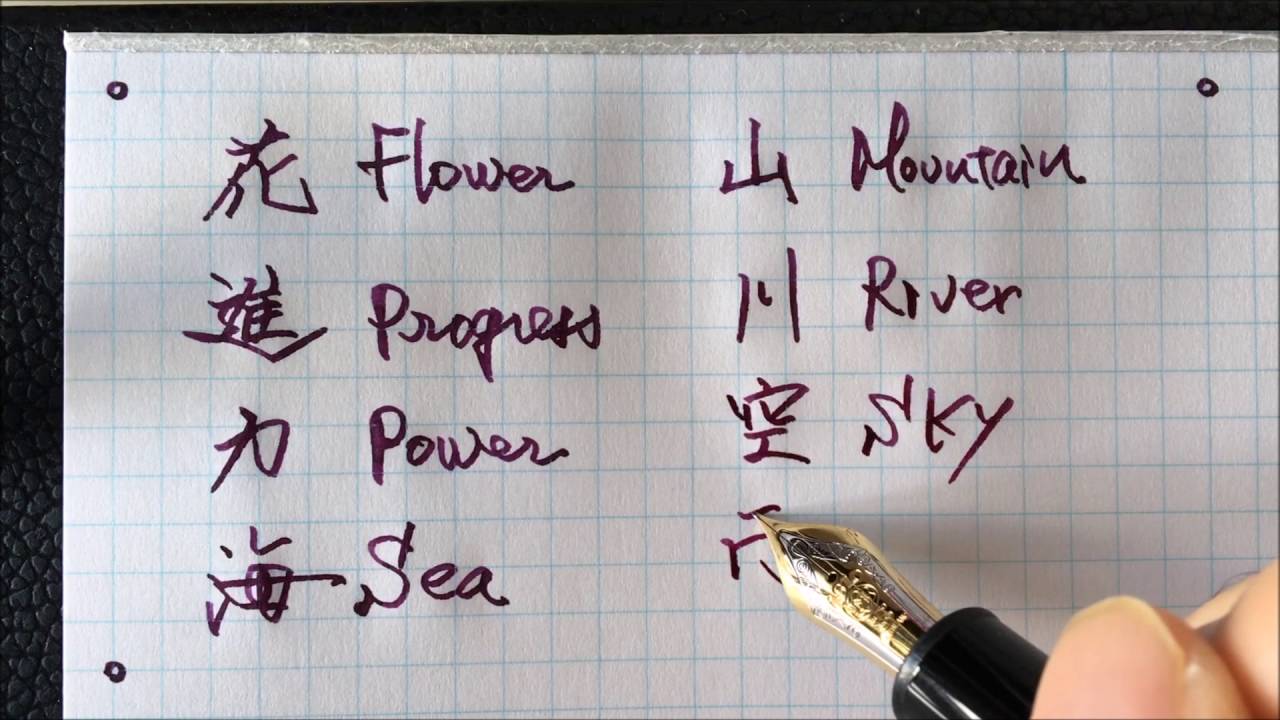 花 Flower
進 Progress
力 Power
海 Sea
山 Mountain
川 River
空 Sky